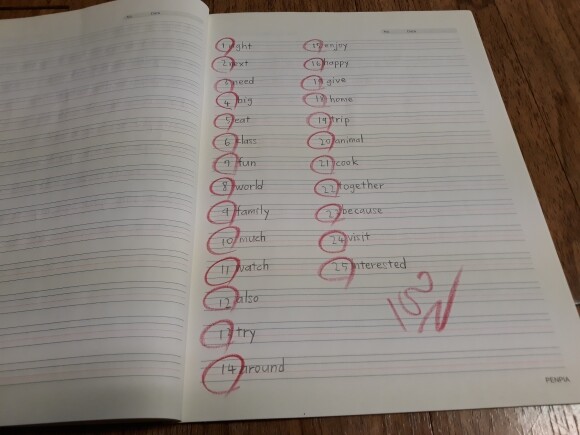 No. Date
No. Date
1 right
2 next
3 need
4 big
5 eat
6 class
7 fun
8 world
9 family
10 much
11 watch
12 also
13 try
14 around
15 enjoy
16 happy
17 give
18 home
19 trip
20 animal
21 cook
22 together
23 because
24 visit
25 interested
100
PENPIA